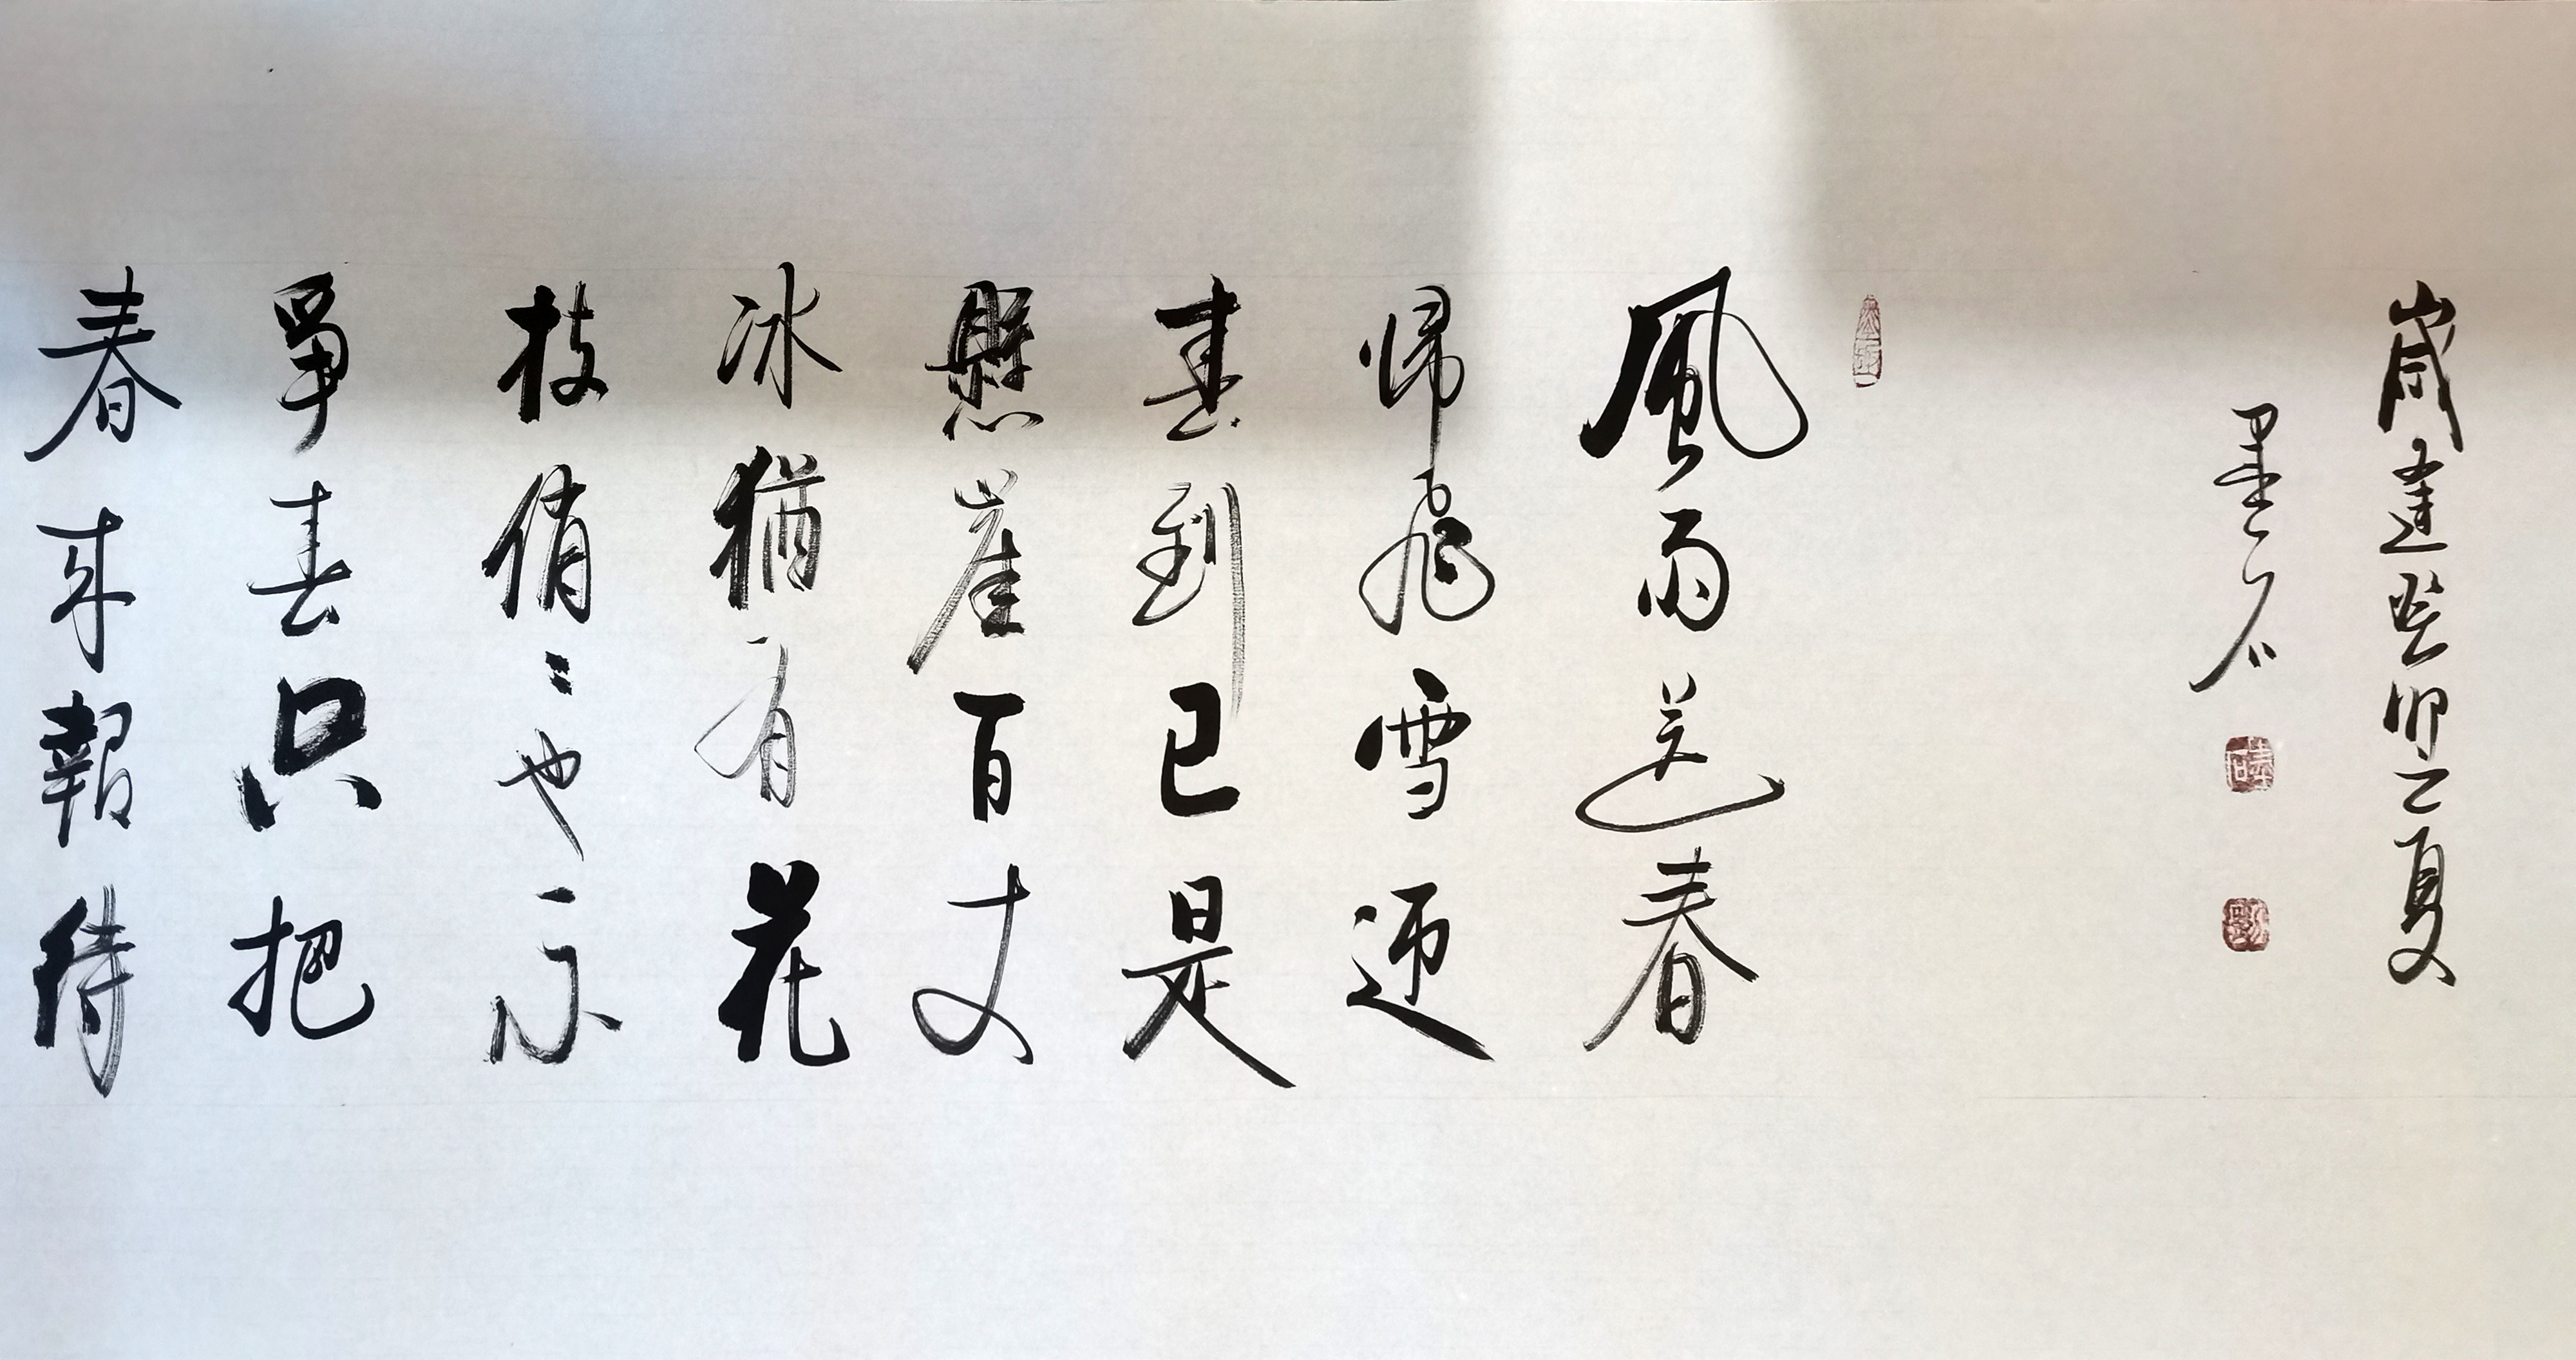 歲逢癸卯之夏
墨石
風雨送春
歸飛雪迎
春到已是
懸崖百丈
冰猶有花
枝俏〻也不
爭春只把
春来報待